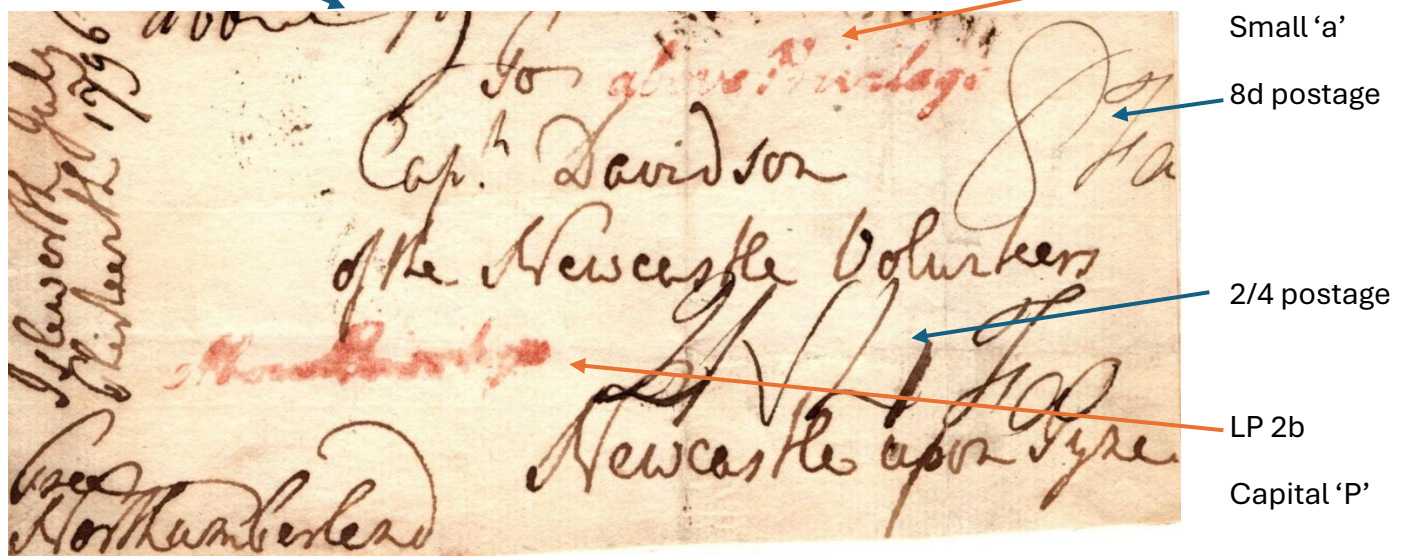 Isleworth July
thirteenth 1796
To above Privilege
Capt. Davidson
of the Newcastle Volunteers
Above Privilege
Newcastle upon Tyne
free
Northumberland
8
Small ‘a’
8d postage
2/4 postage
LP 2b
Capital ‘P’